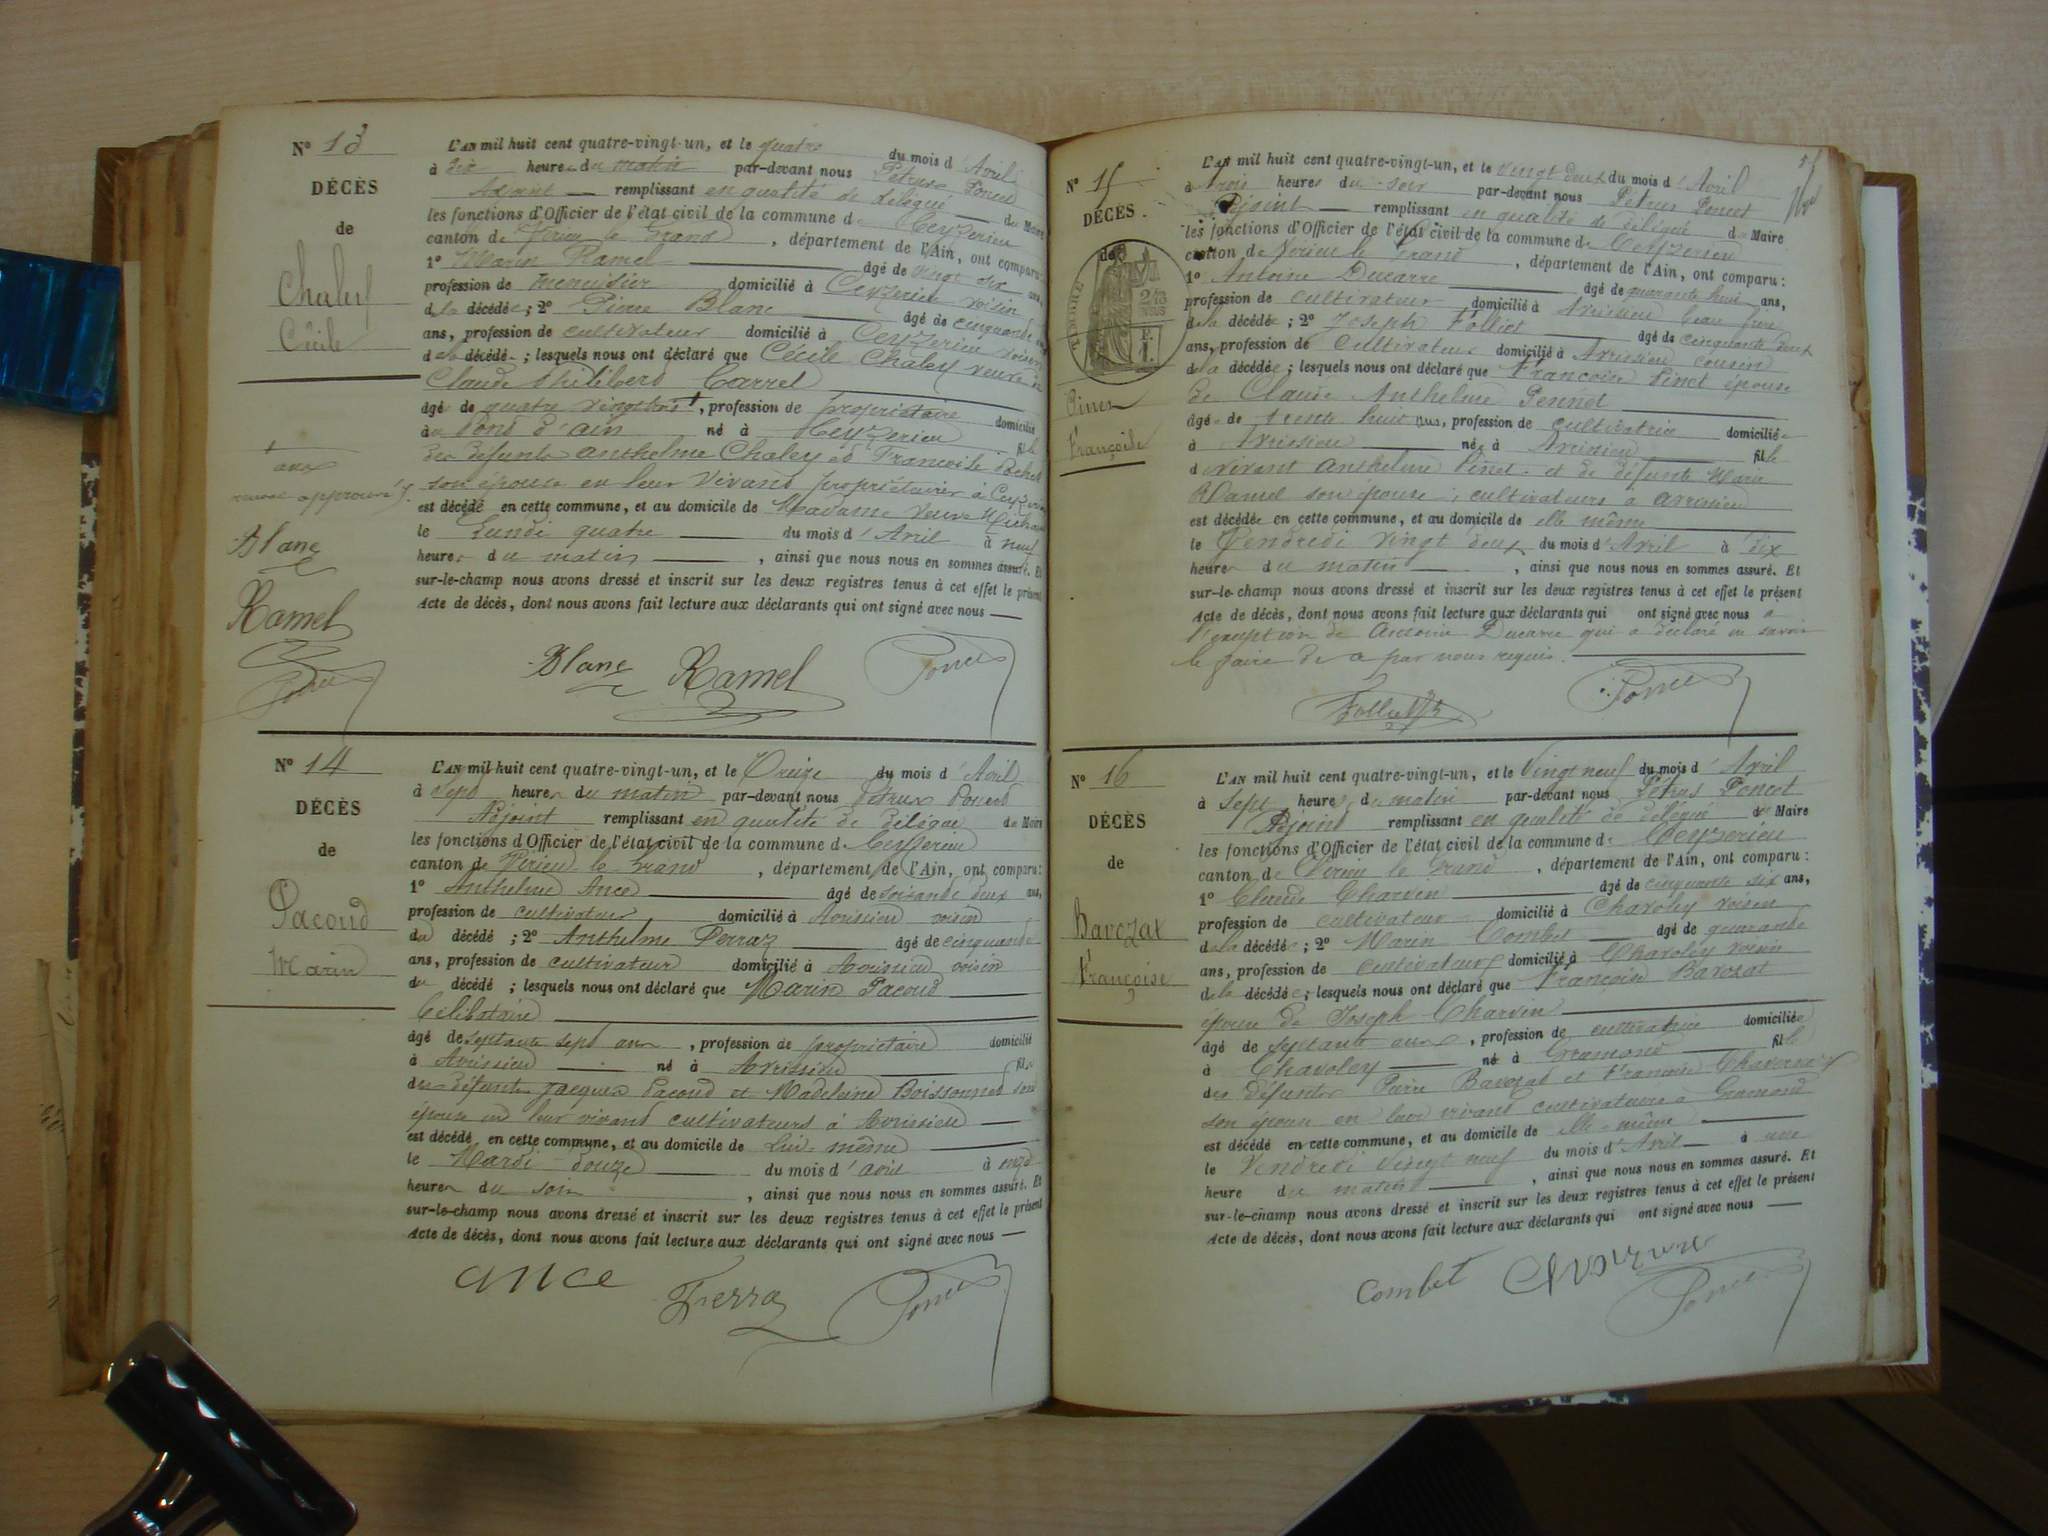 N° 13
DÉCÈS
de
Chaley
Cécile
L'AN mil huit cent quatre-vingt-un, et le quatre du mois d'Avril
à dix heures du matin par-devant nous Pétrus Poncet
Adjoint remplissant en qualité de délégué du Maire
les fonctions d'Officier de l'état civil de la commune de Ceyzerieu
canton de Virieu le Grand, département de l'Ain, ont comparu:
1° Marin Ramel âgé de vingt six ans,
profession de menuisier domicilié à Ceyzerieu voisin
de la décédée; 2° Pierre Blanc âgé de cinquante
ans, profession de cultivateur domicilié à Ceyzerieu voisin
de la décédée; lesquels nous ont déclaré que Cécile Chaley veuve de
Claude Philibert Carrel
âgé de quatre vingt trois +, profession de propriétaire domicilié
à Pont d'Ain né à Ceyzerieu fille
des défunts Anthelme Chaley et Françoise
son épouse en leur vivant propriétaires à Ceyzerieu
est décédé en cette commune, et au domicile de Madame Veuve
le Lundi quatre du mois d'Avril à neuf
heures du matin, ainsi que nous nous en sommes assuré. Et
sur-le-champ nous avons dressé et inscrit sur les deux registres tenus à cet effet le présent
Acte de décès, dont nous avons fait lecture aux déclarants qui ont signé avec nous
+ ans
renvoi approuvé
Blanc
Ramel
Poncet
Blanc Ramel Poncet
N° 14
DÉCÈS
de
Pacoud
Marin
L'AN mil huit cent quatre-vingt-un, et le Treize du mois d'Avril
à sept heures du matin par-devant nous Pétrus Poncet
Adjoint remplissant en qualité de délégué du Maire
les fonctions d'Officier de l'état civil de la commune de Ceyzerieu
canton de Virieu le Grand, département de l'Ain, ont comparu:
1° Anthelme Ance âgé de soixante deux ans,
profession de cultivateur domicilié à Avrissieu voisin
du décédé; 2° Anthelme Perraz âgé de cinquante
ans, profession de cultivateur domicilié à Avrissieu voisin
du décédé; lesquels nous ont déclaré que Marin Pacoud
Célibataire
âgé de septante sept ans, profession de propriétaire domicilié
à Avrissieu né à Avrissieu fils
des défunts Jacques Pacoud et Madeleine Boissonnet son
épouse en leur vivant cultivateurs à Avrissieu
est décédé en cette commune, et au domicile de Lui-même
le Mardi douze du mois d'avril à onze
heures du soir, ainsi que nous nous en sommes assuré. Et
sur-le-champ nous avons dressé et inscrit sur les deux registres tenus à cet effet le présent
Acte de décès, dont nous avons fait lecture aux déclarants qui ont signé avec nous
Ance Perraz Poncet
N° 15
DÉCÈS
de
Pinet
Françoise
L'AN mil huit cent quatre-vingt-un, et le vingt deux du mois d'Avril
à trois heures du soir par-devant nous Pétrus Poncet
Adjoint remplissant en qualité de délégué du Maire
les fonctions d'Officier de l'état civil de la commune de Ceyzerieu
canton de Virieu le Grand, département de l'Ain, ont comparu:
1° Antoine Ducarre âgé de quarante huit ans,
profession de cultivateur domicilié à Avrissieu beau frère
de la décédée; 2° Joseph Folliet âgé de cinquante deux
ans, profession de Cultivateur domicilié à Avrissieu cousin
de la décédée; lesquels nous ont déclaré que Françoise Pinet épouse
de Claude Anthelme
âgée de trente huit ans, profession de cultivatrice domiciliée
à Avrissieu née à Avrissieu fille
d vivant Anthelme Pinet et de défunte Marie
Ramel son épouse, cultivateurs à Avrissieu
est décédée en cette commune, et au domicile de elle même
le Vendredi vingt deux du mois d'Avril à dix
heures du matin, ainsi que nous nous en sommes assuré. Et
sur-le-champ nous avons dressé et inscrit sur les deux registres tenus à cet effet le présent
Acte de décès, dont nous avons fait lecture aux déclarants qui ont signé avec nous à
l'exception de Antoine Ducarre qui a déclaré ne savoir
le faire de ce par nous requis.
Folliet Jh Poncet
N° 16
DÉCÈS
de
Barozat
Françoise
L'AN mil huit cent quatre-vingt-un, et le Vingt neuf du mois d'Avril
à sept heures du matin par-devant nous Pétrus Poncet
Adjoint remplissant en qualité de délégué du Maire
les fonctions d'Officier de l'état civil de la commune de Ceyzerieu
canton de Virieu le Grand, département de l'Ain, ont comparu:
1° Claude Charvin âgé de cinquante six ans,
profession de cultivateur domicilié à Chavoley voisin
de la décédée; 2° Marin Combet âgé de quarante
ans, profession de cultivateur domicilié à Chavoley voisin
de la décédée; lesquels nous ont déclaré que Françoise Barozat
épouse de Joseph Charvin
âgé de septante ans, profession de cultivatrice domiciliée
à Chavoley né à Gramond fille
des défunts Pierre Barozat et Françoise
son épouse en leur vivant cultivateurs à Gramond
est décédé en cette commune, et au domicile de elle-même
le Vendredi Vingt neuf du mois d'Avril à une
heure du matin, ainsi que nous nous en sommes assuré. Et
sur-le-champ nous avons dressé et inscrit sur les deux registres tenus à cet effet le présent
Acte de décès, dont nous avons fait lecture aux déclarants qui ont signé avec nous
Combet Poncet